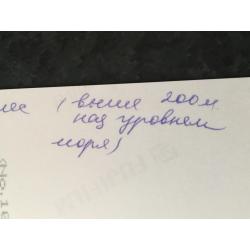 (выше 200м
над уровнем
моря)